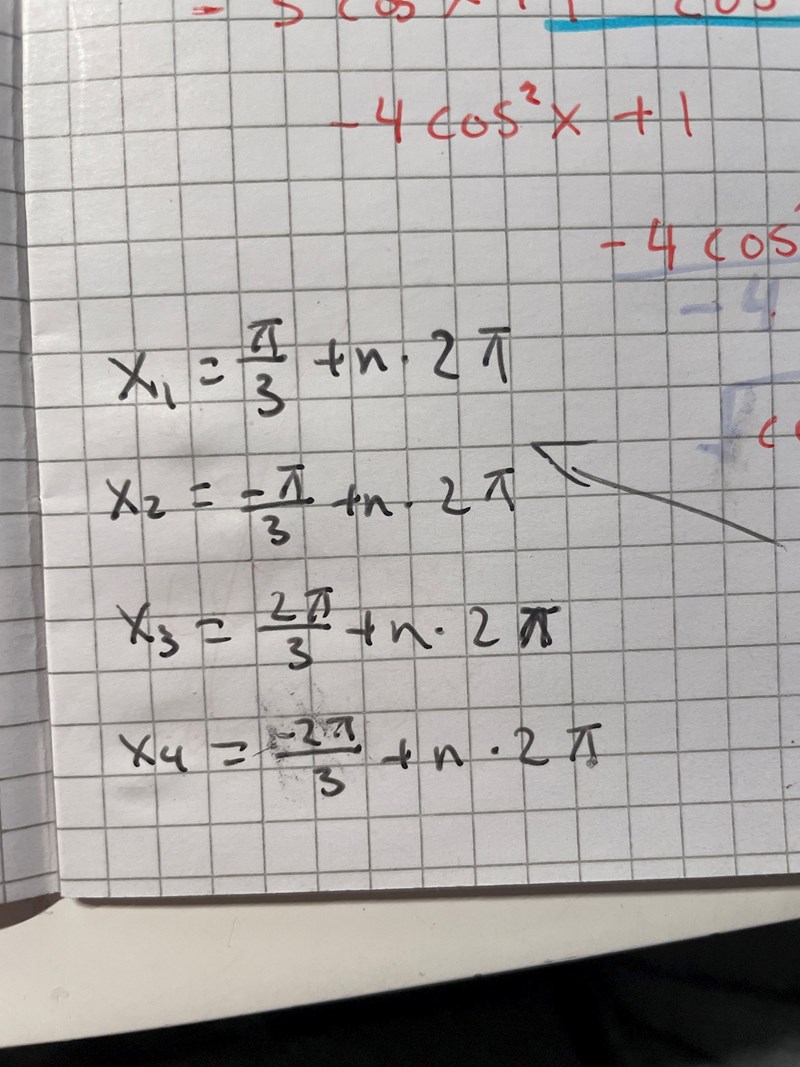 -4 cos²x + 1
-4 cos
-4
x₁ = π/3 + n · 2π
x₂ = -π/3 + n · 2π
x₃ = 2π/3 + n · 2π
x₄ = -2π/3 + n · 2π